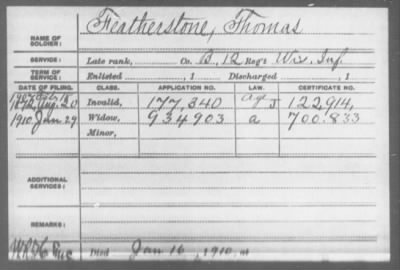 NAME OF SOLDIER: Featherstone, Thomas
SERVICE: Late rank, Co. B, 12 Reg't Wis. Inf.
TERM OF SERVICE: Enlisted , 1 Discharged , 1
DATE OF FILING. CLASS. APPLICATION NO. LAW. CERTIFICATE NO.
Aug. 20 Invalid, 177,340 Age J 122,914,
1910 Jan 29 Widow, 934903 a 700.833
Minor,
ADDITIONAL SERVICES:
REMARKS:
Died Jan 16, 1910, at